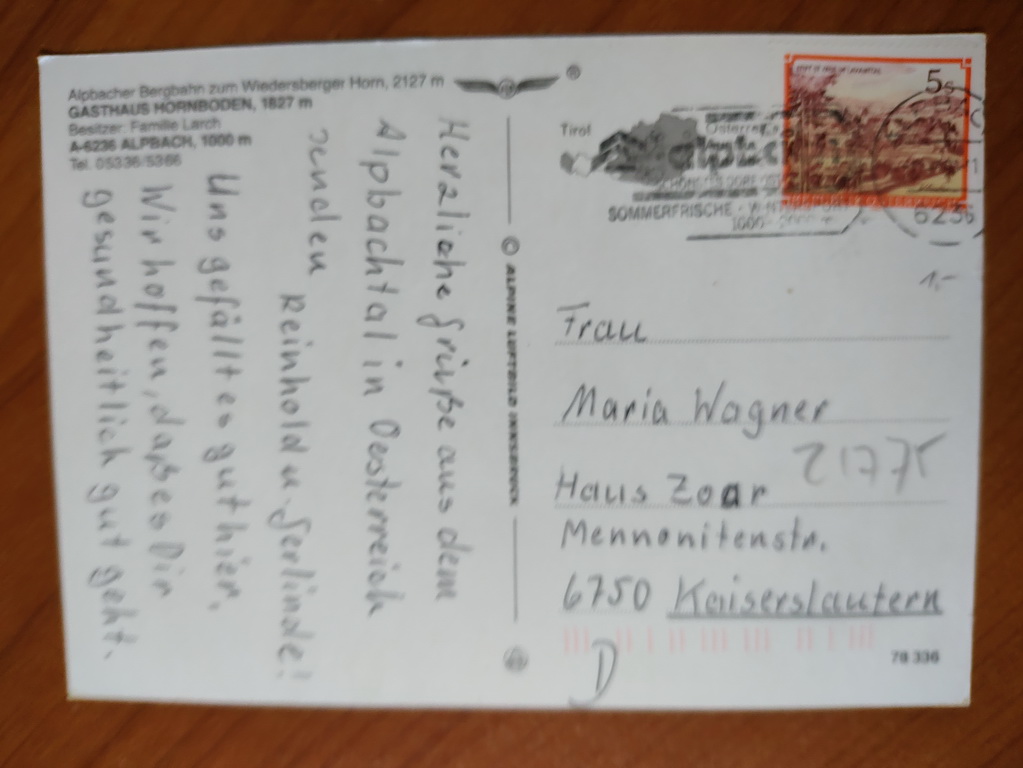 Alpbacher Bergbahn zum Wiedersberger Horn, 2127 m
GASTHAUS HORNBODEN, 1827 m
Besitzer: Familie Larch
A-6236 ALPBACH, 1000 m
Tel. 05336/5366
Herzliche Grüße aus dem
Alpbachtal in Oesterreich
senden
Reinhold u. Gerlinde!
Uns gefällt es gut hier.
Wir hoffen, daß es Dir
gesundheitlich gut geht.
®
© ALPINE LUFTBILD INNSBRUCK
Tirol
SOMMERFRISCHE
5s
6236
1,-
Frau
Maria Wagner
Haus Zoar
Mennonitenstr.
6750 Kaiserslautern
D
78 336